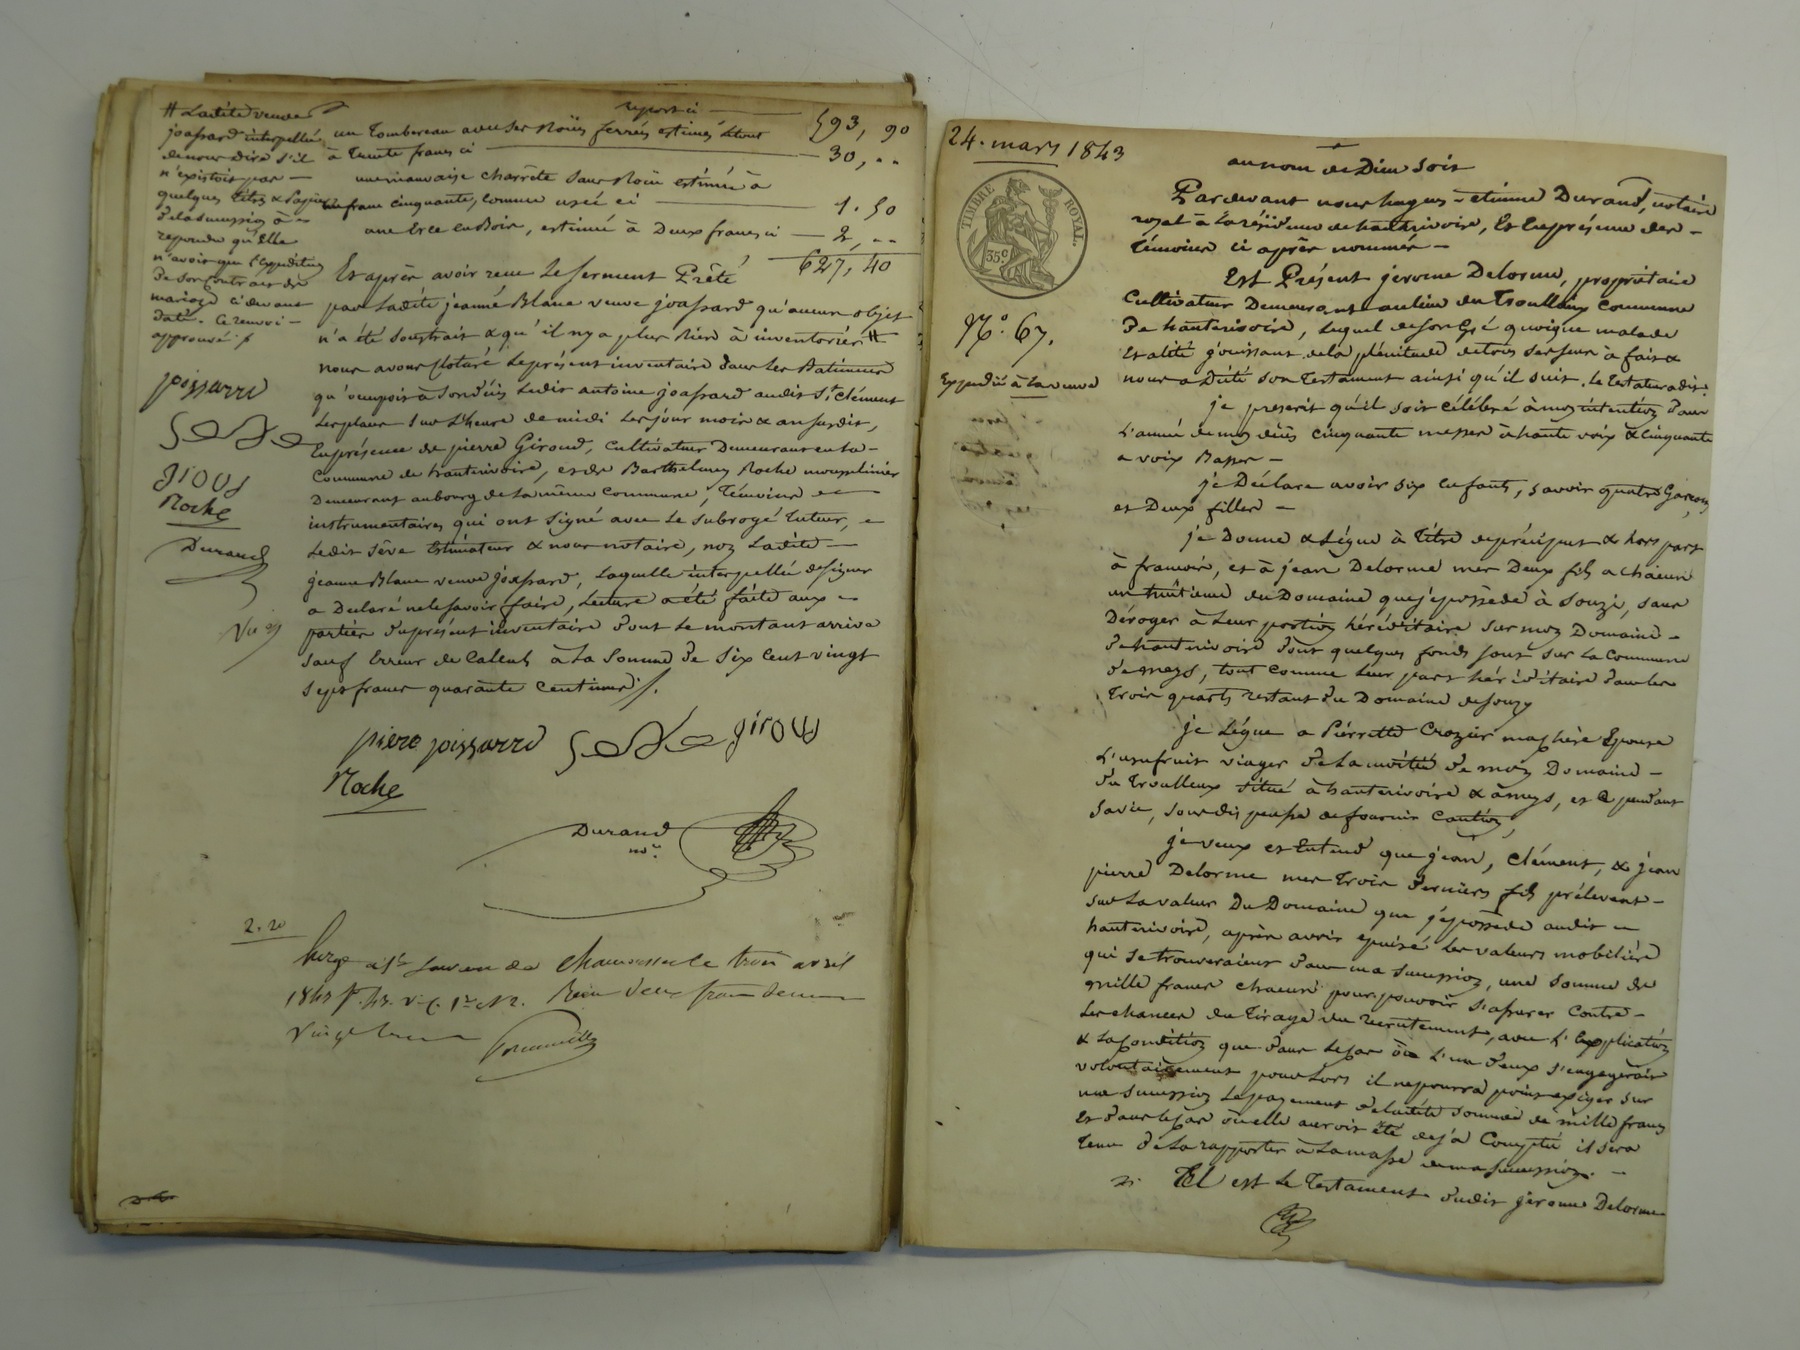 report ci — 593, 90
un Tombereau avec ses Roües ferrées estimés le tout
à Trente francs ci — 30, ..
une mauvaise charrette sans Roüe estimée à
un franc cinquante, comme usée ci — 1. 50
une Erce en Bois, estimée à Deux francs ci — 2, ..
627, 40
Et après avoir reçu le serment Prêté
par Ladite jeanne Blanc veuve joassard qu'aucun objet
n'a été soustrait & qu'il n'y a plus Rien à inventorier #
nous avons Cloturé le présent inventaire dans les Batimens
qu'occupoit à son décès Ledit antoine joassard audit St. Clément
les places sur L'heure de midi les jour mois & an susdits,
En présence de pierre Giroud, cultivateur Demeurant en la
Commune de hauterivoire, et de Barthelemy Roche mousselinier
Demeurant au bourg de la même Commune, Témoins
instrumentaires qui ont signé avec Le subrogé tuteur,
Ledit sêve Estimateur & nous notaire, non Ladite —
jeanne Blanc veuve joassard, Laquelle interpellée de signer
a Declaré ne le savoir faire, Lecture a été faite aux
parties du présent inventaire dont Le montant arrive
sauf Erreur de Calcul à La Somme de Six Cent vingt
sept francs quarante Centimes ./.
piere joissarrd Seve giroud
Roche
Durand
no.re
# Ladite veuve
joassard interpellée
de nous dire s'il
n'existoit pas —
quelques titres & Papiers
de la succession à
repondu qu'elle
n'avoit que l'Expédition
de son Contrat de
mariage ci devant
daté. Ce renvoi —
approuvé ./.
joissarrd
Seve
giroud
Roche
Durand
2. 20
trois avril
Deux francs
24. mars 1843
TIMBRE ROYAL.
35c
No. 67.
Expédié à la veuve
au nom de Dieu soit
Pardevant nous hugues-étienne Durand, notaire
royal à la résidence de hauterivoire, Et En présence des —
Témoins ci après nommés —
Est Présent jerome Delorme, propriétaire
Cultivateur Demeurant au lieu du Troulleux Commune
de hauterivoire, Lequel de son Gré quoique malade
et alité jouissant de la plénitude de tous ses sens à fait &
nous a Dicté son Testament ainsi qu'il suit, le Testateur a dit:
je prescrit qu'il soit célébré à mon intention dans
L'année de mon décès cinquante messes à haute voix & cinquante
a voix Basses —
je Déclare avoir six Enfants, savoir quatre Garçons,
et Deux filles —
je Donne & Lègue à Titre de préciput & hors part
à francois, et à jean Delorme mes Deux fils a chacun
un huitieme du Domaine que je possède à Souzy, sans
Déroger à Leur portion héréditaire sur mon Domaine —
de hauterivoire dont quelques fonds sont sur La Commune
de meys, tout comme Leur part héréditaire dans les
Trois quarts restant du Domaine de Souzy
je Lègue a Pierrette Crozier ma chère Epouse
L'usufruit viager de La moitié de mon Domaine —
du Troulleux situé à hauterivoire & à meys, et ce pendant
sa vie, sous dispense de fournir Caution,
je veux et Entend que jean, Clément, & jean
pierre Delorme mes trois derniers fils prélevent —
sur La valeur Du Domaine que je possede audit
hauterivoire, après avoir epuisé Les valeurs mobilière
qui se trouveraient dans ma succession, une somme de
mille francs chacun pour pouvoir s'assurer Contre —
Les chances du Tirage du recrutement, avec L'Explication
& La Condition que dans Le Cas où L'un d'eux s'engagerait
volontairement pour Lors il ne pourra point exiger sur
ma succession Le payement de Ladite somme de mille francs
et dans le Cas où elle auroit été dejà Comptée il sera
Tenu de La rapporter à La masse de ma succession. —
Tel est Le Testament dudit jérome Delorme